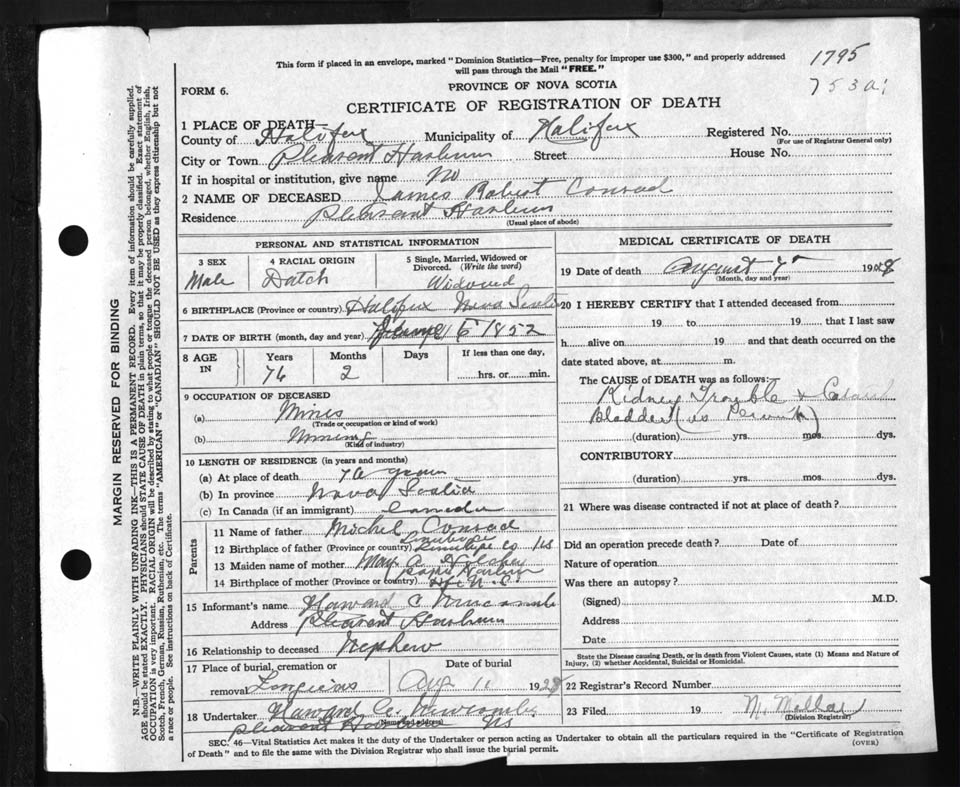 1795
753a1
This form if placed in an envelope, marked "Dominion Statistics—Free, penalty for improper use $300," and properly addressed
will pass through the Mail "FREE."
FORM 6.
PROVINCE OF NOVA SCOTIA
CERTIFICATE OF REGISTRATION OF DEATH
1 PLACE OF DEATH—
County of Halifax Municipality of Halifax Registered No.
(For use of Registrar General only)
City or Town Pleasant Harbour Street House No.
If in hospital or institution, give name No
2 NAME OF DECEASED James Robert Conrad
Residence Pleasant Harbour
(Usual place of abode)
PERSONAL AND STATISTICAL INFORMATION
3 SEX 4 RACIAL ORIGIN 5 Single, Married, Widowed or Divorced. (Write the word)
Male Datch Widowed
6 BIRTHPLACE (Province or country) Halifax Nova Scotia
7 DATE OF BIRTH (month, day and year) 6 1852
8 AGE IN Years Months Days If less than one day,
76 2 hrs. or min.
9 OCCUPATION OF DECEASED
(a) Mines
(Trade or occupation or kind of work)
(b) Mining
(Kind of industry)
10 LENGTH OF RESIDENCE (in years and months)
(a) At place of death 76 years
(b) In province Nova Scotia
(c) In Canada (if an immigrant) Canada
Parents
11 Name of father Michel Conrad
12 Birthplace of father (Province or country) Co NS
13 Maiden name of mother Mary A
14 Birthplace of mother (Province or country)
15 Informant's name Howard C Newcombe
Address Pleasant Harbour
16 Relationship to deceased Nephew
17 Place of burial, cremation or removal Date of burial
Aug 11 1928
18 Undertaker Howard C. Newcombe
(Name and address)
Pleasant NS
MEDICAL CERTIFICATE OF DEATH
19 Date of death August 1928
(Month, day and year)
20 I HEREBY CERTIFY that I attended deceased from
19 to 19 that I last saw
h alive on 19 and that death occurred on the
date stated above, at m.
The CAUSE OF DEATH was as follows:
Kidney Trouble &
Bladder
(duration) yrs. mos. dys.
CONTRIBUTORY
(duration) yrs. mos. dys.
21 Where was disease contracted if not at place of death?
Did an operation precede death? Date of
Nature of operation
Was there an autopsy?
(Signed) M.D.
Address
Date
State the Disease causing Death, or in death from Violent Causes, state (1) Means and Nature of
Injury, (2) whether Accidental, Suicidal or Homicidal.
22 Registrar's Record Number
23 Filed 19
(Division Registrar)
SEC. 46—Vital Statistics Act makes it the duty of the Undertaker or person acting as Undertaker to obtain all the particulars required in the "Certificate of Registration
of Death" and to file the same with the Division Registrar who shall issue the burial permit.
(OVER)
MARGIN RESERVED FOR BINDING
N.B.—WRITE PLAINLY WITH UNFADING INK—THIS IS A PERMANENT RECORD. Every item of information should be carefully supplied.
AGE should be stated EXACTLY. PHYSICIANS should STATE CAUSE OF DEATH in plain terms so that it may be properly classified. Exact statement of
OCCUPATION is very important. RACIAL ORIGIN will be described by stating to what people or tongue the deceased person belonged, whether English, Irish,
Scotch, French, German, Russian, Ruthenian, etc. The terms "AMERICAN" or "CANADIAN" SHOULD NOT BE USED as they express citizenship but not
a race or people. See instructions on back of Certificate.